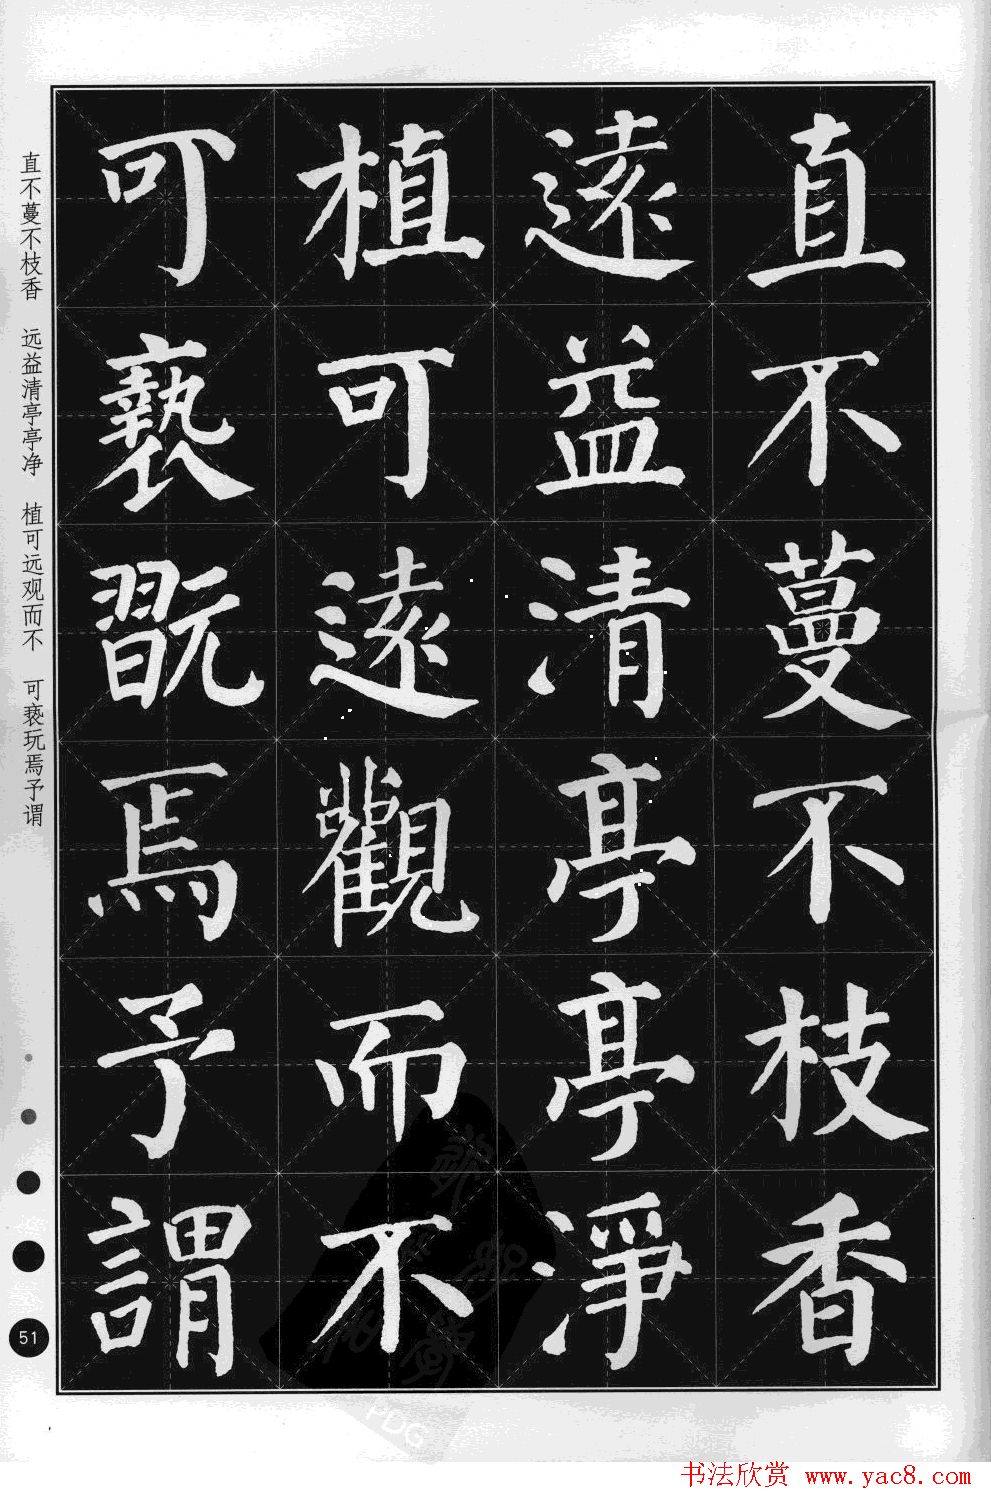 直不蔓不枝香
遠益清亭亭淨
植可遠觀而不
可褻翫焉予謂
直不蔓不枝香 远益清亭亭净 植可远观而不 可亵玩焉予谓
51
PDG
书法欣赏 www.yac8.com